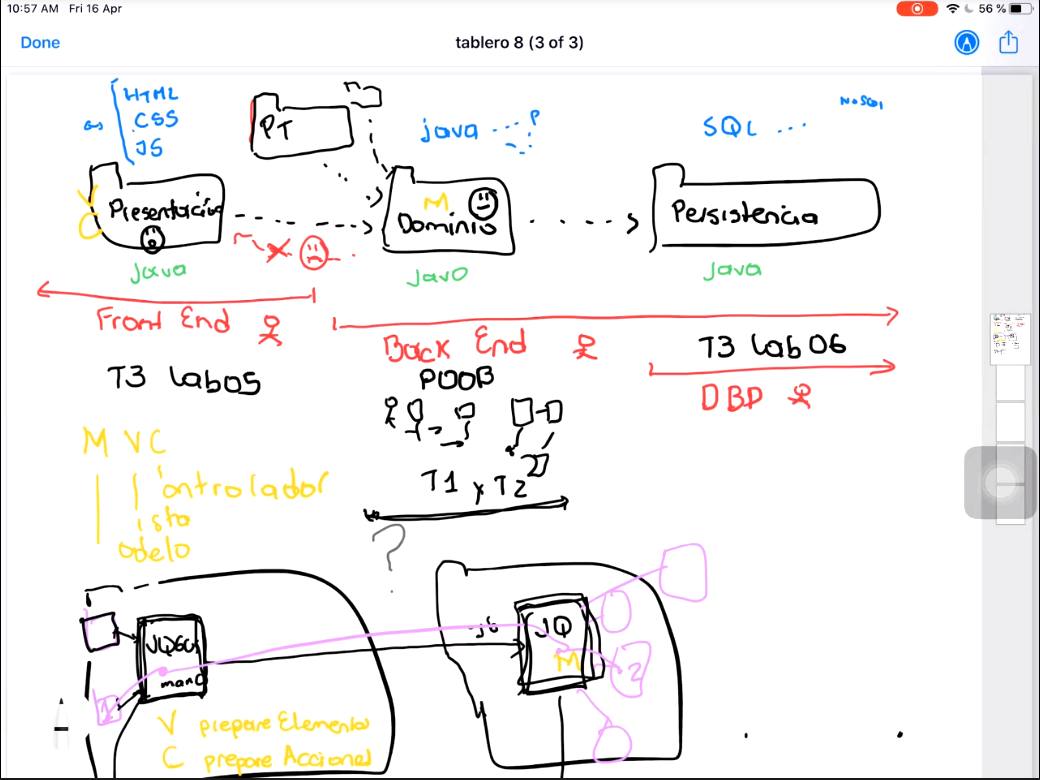 10:57 AM Fri 16 Apr
56 %
Done
tablero 8 (3 of 3)
HTML
CSS
JS
PT
java ... P
SQL ...
V
C
Presentación
M
Dominio
Persistencia
java
java
java
Front End
Back End
T3 lab06
T3 lab05
POOB
DBD
M V C
ontrolador
ista
odelo
T1 y T2
?
JQ
M
1
2
V prepare Elementos
C prepare Acciones